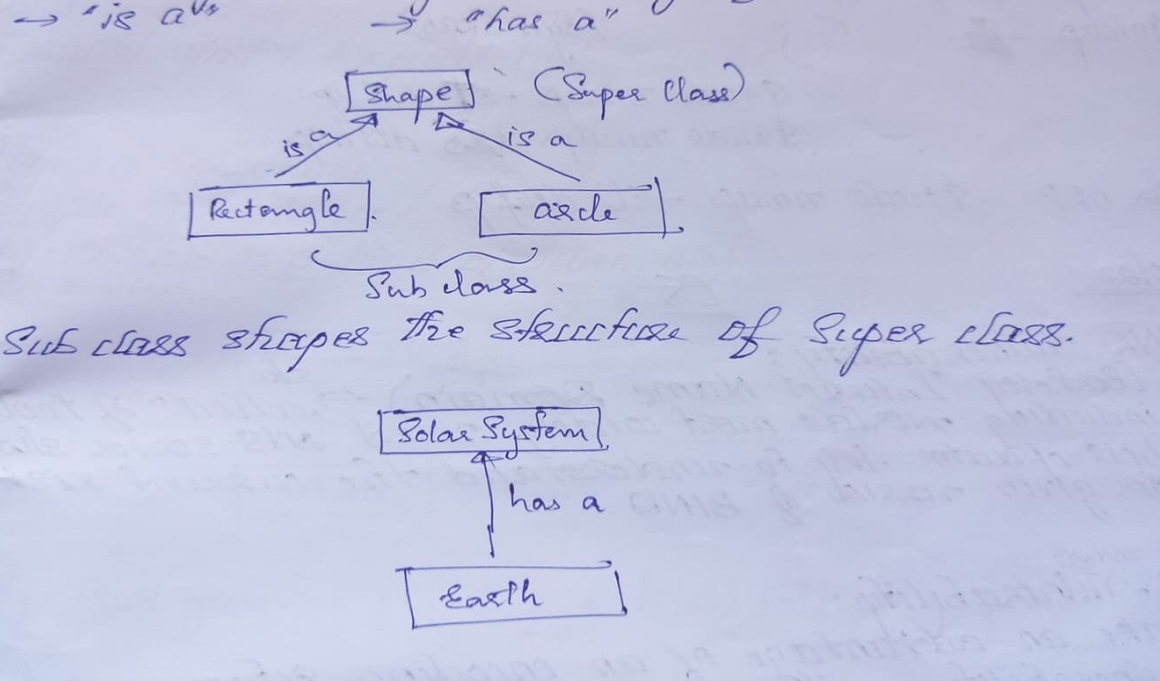 → "is a" → "has a"
Shape (Super Class)
is a is a
Rectangle circle
Sub class.
Sub class shapes the structure of Super class.
Solar System
has a
Earth